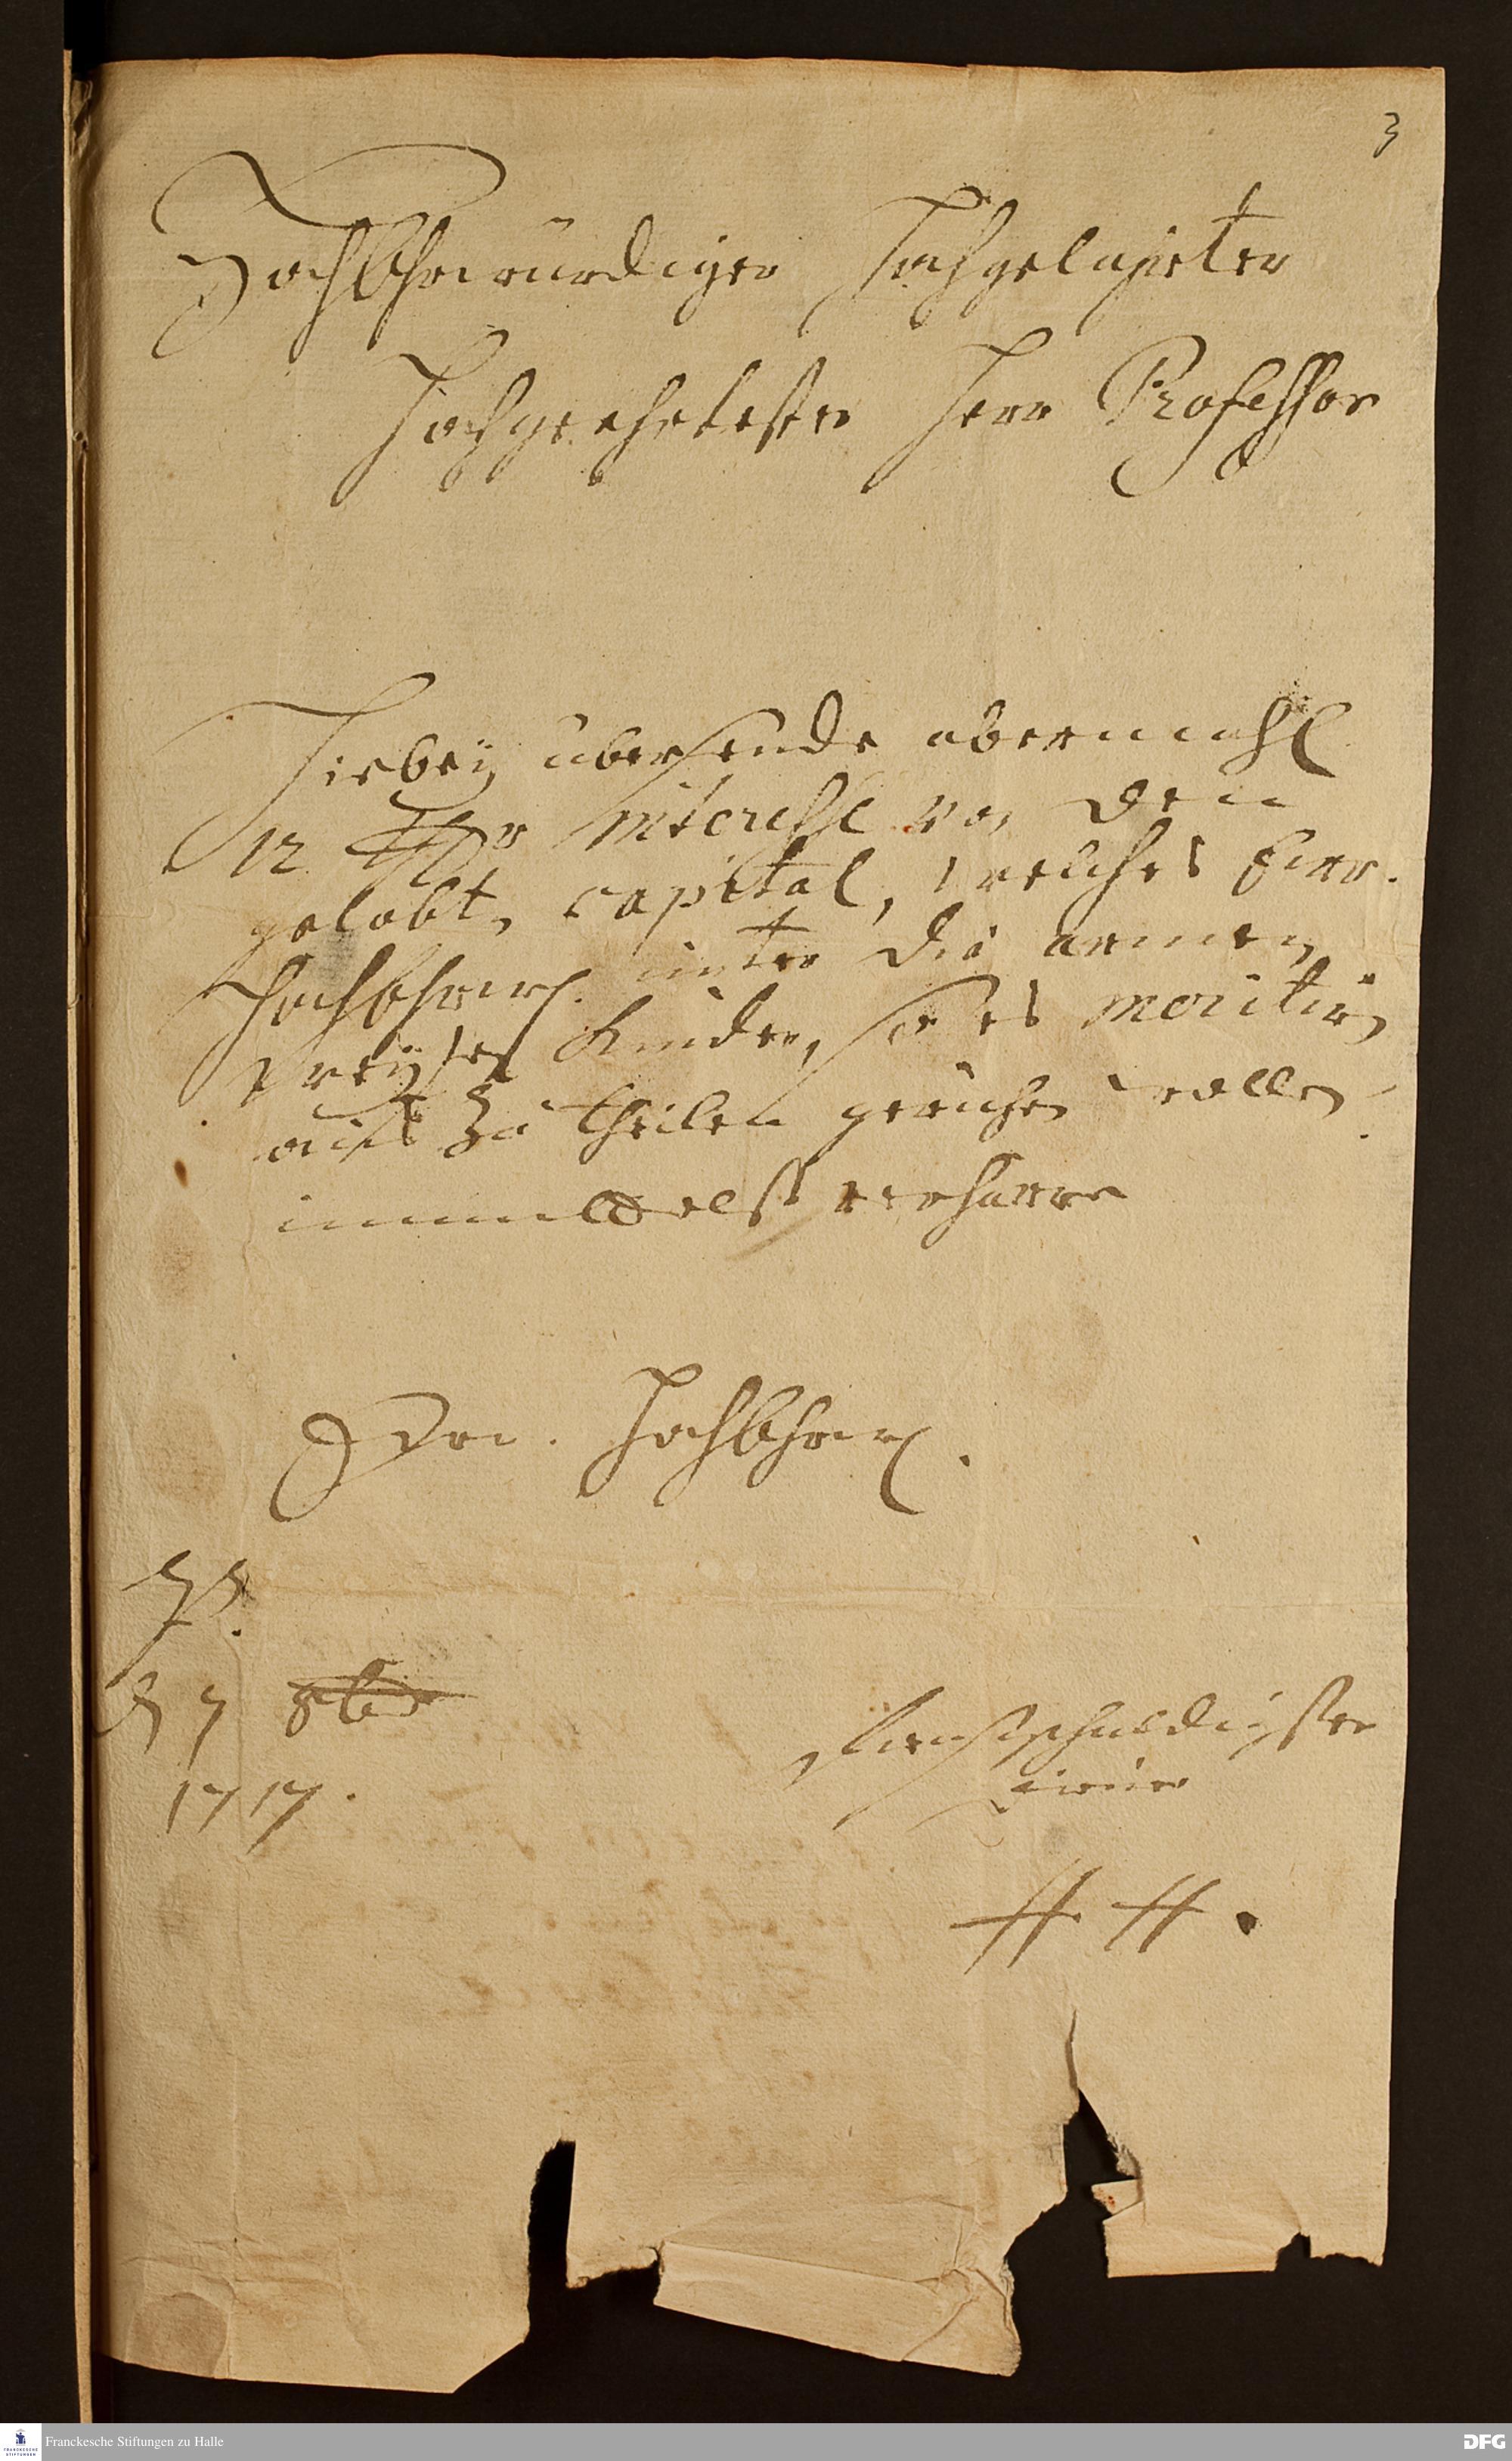 3
HochEhrwürdiger Hochgelahrter
Hochgeehrtester Herr Professor
Hiebey übersende abermahl
12 Thlr Interesse von den
gelobten capital, welches Euer.
HochEhrw. unter die armen
Kinder, so es meritiren
aus zu theilen geruhen wollen,
immittelst verharre
Ew. HochEhrw.
H.
d 7 8br
1717.
dienstschuldigster
diener
H. H.
Franckesche Stiftungen zu Halle
FRANCKESCHE STIFTUNGEN
DFG